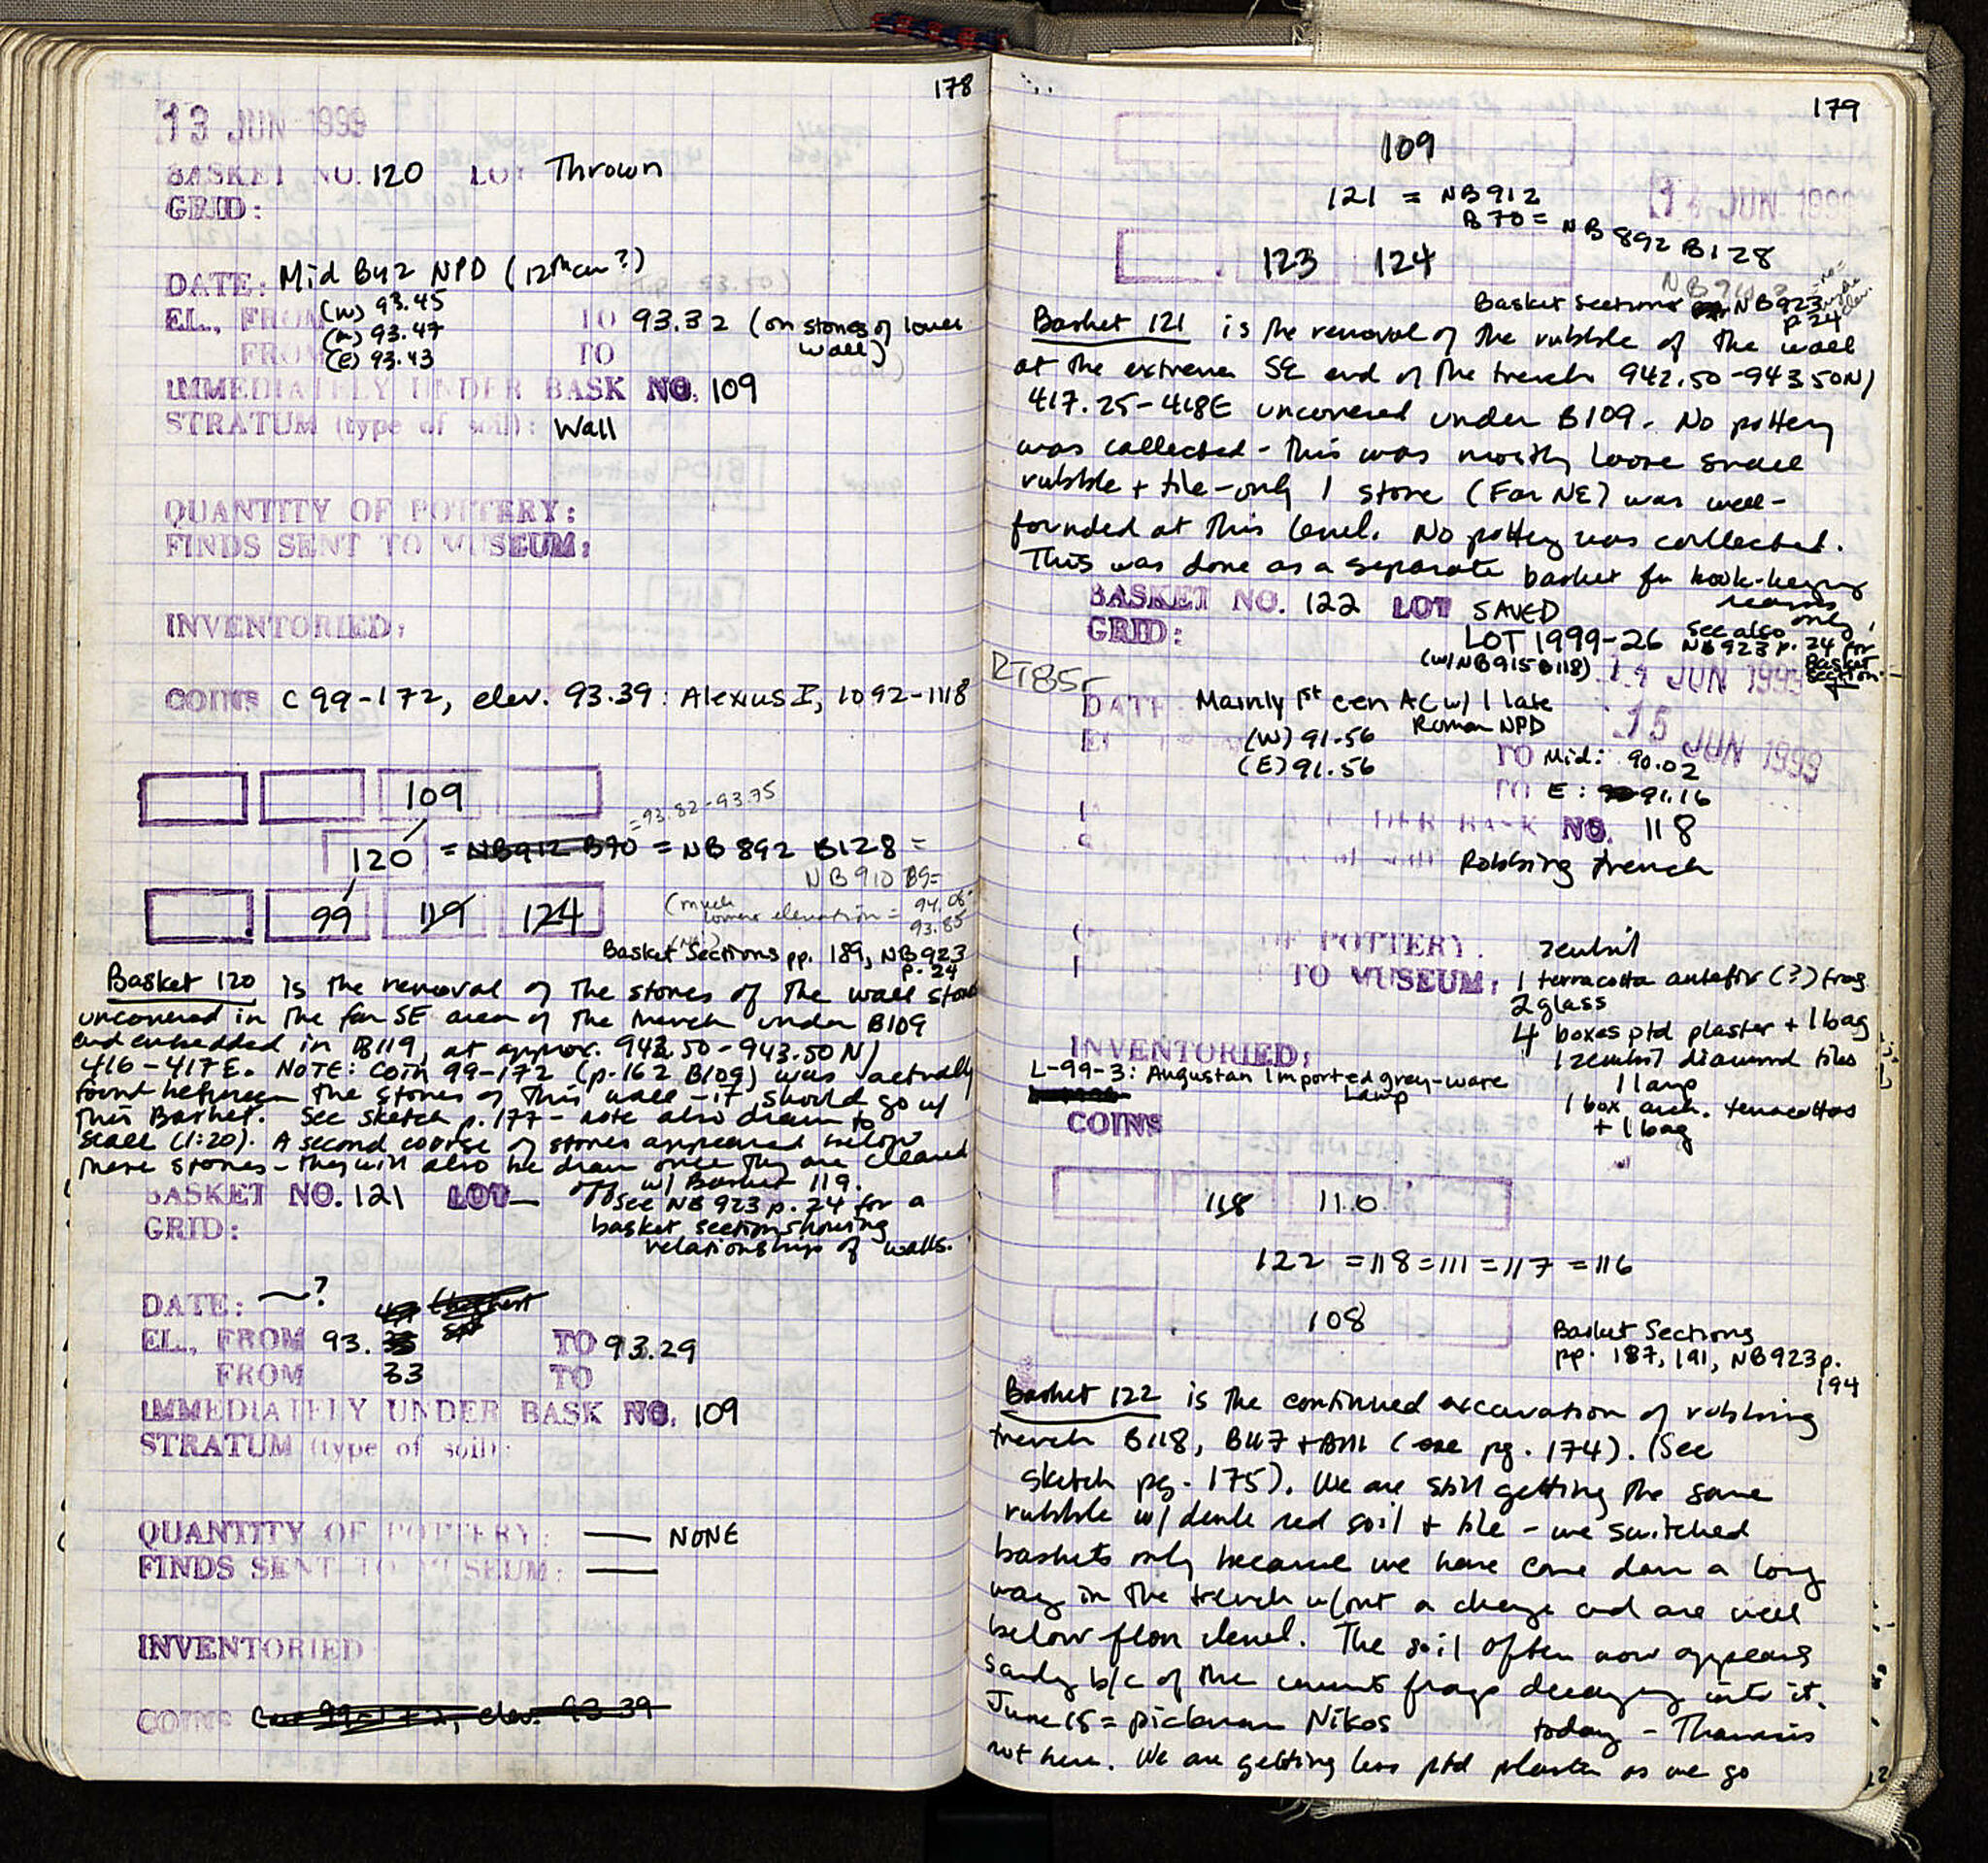 178
13 JUN 1999
BASKET NO. 120 LOT Thrown
GRID:
DATE: Mid Byz NPD (12th cen?)
EL., FROM (W) 93.45 TO 93.32 (on stones of lower
(M) 93.47 wall)
FROM (E) 93.43 TO
IMMEDIATELY UNDER BASK NO. 109
STRATUM (type of soil): Wall
QUANTITY OF POTTERY:
FINDS SENT TO MUSEUM:
INVENTORIED:
COINS C 99-172, elev. 93.39: Alexius I, 1092-1118
109
= 93.82-93.75
120 = NB912 B70 = NB 892 B128 =
NB 910 B9=
99 119 124
(much
lower elevation = 94.08-
93.85
Basket Sections pp. 189, NB923
p. 24
Basket 120 is the removal of the stones of the wall
uncovered in the far SE area of the trench under B109
and embedded in B119, at approx. 942.50-943.50N/
416-417E. NOTE: Coin 99-172 (p. 162 B109) was actually
found between the stones of this wall - it should go w/
this Basket. See sketch p. 177 - note also drawn to
scale (1:20). A second course of stones appeared below
these stones - they will also be drawn once they are cleared
off w/ Basket 119.
BASKET NO. 121 LOT —
See NB 923 p. 24 for a
GRID:
basket section showing
relationship of walls.
DATE: ~?
EL., FROM 93. TO 93.29
FROM 33 TO
IMMEDIATELY UNDER BASK NO. 109
STRATUM (type of soil):
QUANTITY OF POTTERY: — NONE
FINDS SENT TO MUSEUM: —
INVENTORIED
COINS Coin 99-172, elev. 93.39
179
109
121 = NB912
14 JUN 1999
B70 = NB 892 B128
123 124
Basket Sections NB923
p. 24
Basket 121 is the removal of the rubble of the wall
at the extreme SE end of the trench 942.50-943.50N/
417.25-418E uncovered under B109. No pottery
was collected - this was mostly loose small
rubble + tile - only 1 stone (Far NE) was well-
founded at this level. No pottery was collected.
This was done as a separate basket for book-keeping
reasons
only.
BASKET NO. 122 LOT SAVED
GRID:
LOT 1999-26 See also
NB923 p. 24 for
Basket
Section
(w/NB915 B118) 14 JUN 1999
RT85
DATE Mainly 1st cen AC w/ 1 late
Roman NPD
15 JUN 1999
(W) 91.56 TO Mid: 90.02
(E) 91.56 TO E: 91.16
DER BASK NO. 118
Robbing trench
OF POTTERY. zembil
TO MUSEUM: 1 terracotta antefix (?) frag
2 glass
4 boxes ptd plaster + 1 bag
INVENTORIED: 1 zembil diamond tiles
L-99-3: Augustan Imported grey-ware
Lamp
1 lamp
1 box arch. terracottas
+ 1 bag
COINS
118 110
122 = 118 = 111 = 117 = 116
108
Basket Sections
pp. 187, 191, NB923 p.
194
Basket 122 is the continued excavation of robbing
trench B118, B117 + B111 (see pg. 174). (See
sketch pg. 175). We are still getting the same
rubble w/ dark red soil + tile - we switched
baskets only because we have come down a long
way in the trench w/out a change and are well
below floor level. The soil often now appears
sandy b/c of the cement frags decaying into it.
June 15 = pickman Nikos today - Thanasis
not here. We are getting less ptd plaster as we go